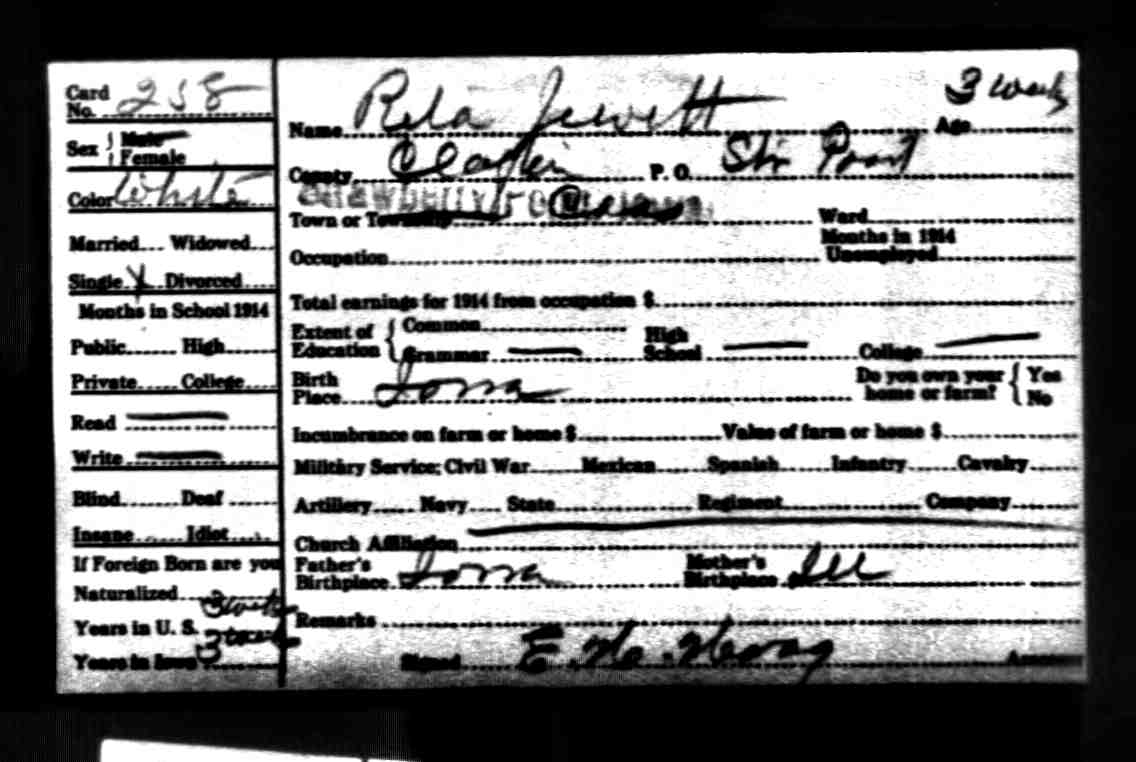 Card No. 258
Sex Male Female
Color White
Married Widowed
Single X Divorced
Months in School 1914
Public High
Private College
Read
Write
Blind Deaf
Insane Idiot
If Foreign Born are you
Naturalized
Years in U. S. 3 weeks
Years in Iowa 3 weeks
Name Rita Jewett Age 3 weeks
County P. O. Str Point
Town or Township Ward
Occupation Months in 1914 Unemployed
Total earnings for 1914 from occupation $
Extent of Education Common Grammar High School College
Birth Place Iowa Do you own your home or farm? Yes No
Incumbrance on farm or home $ Value of farm or home $
Military Service; Civil War Mexican Spanish Infantry Cavalry
Artillery Navy State Regiment Company
Church Affiliation
Father's Birthplace Iowa Mother's Birthplace Ill
Remarks
Signed E. H.